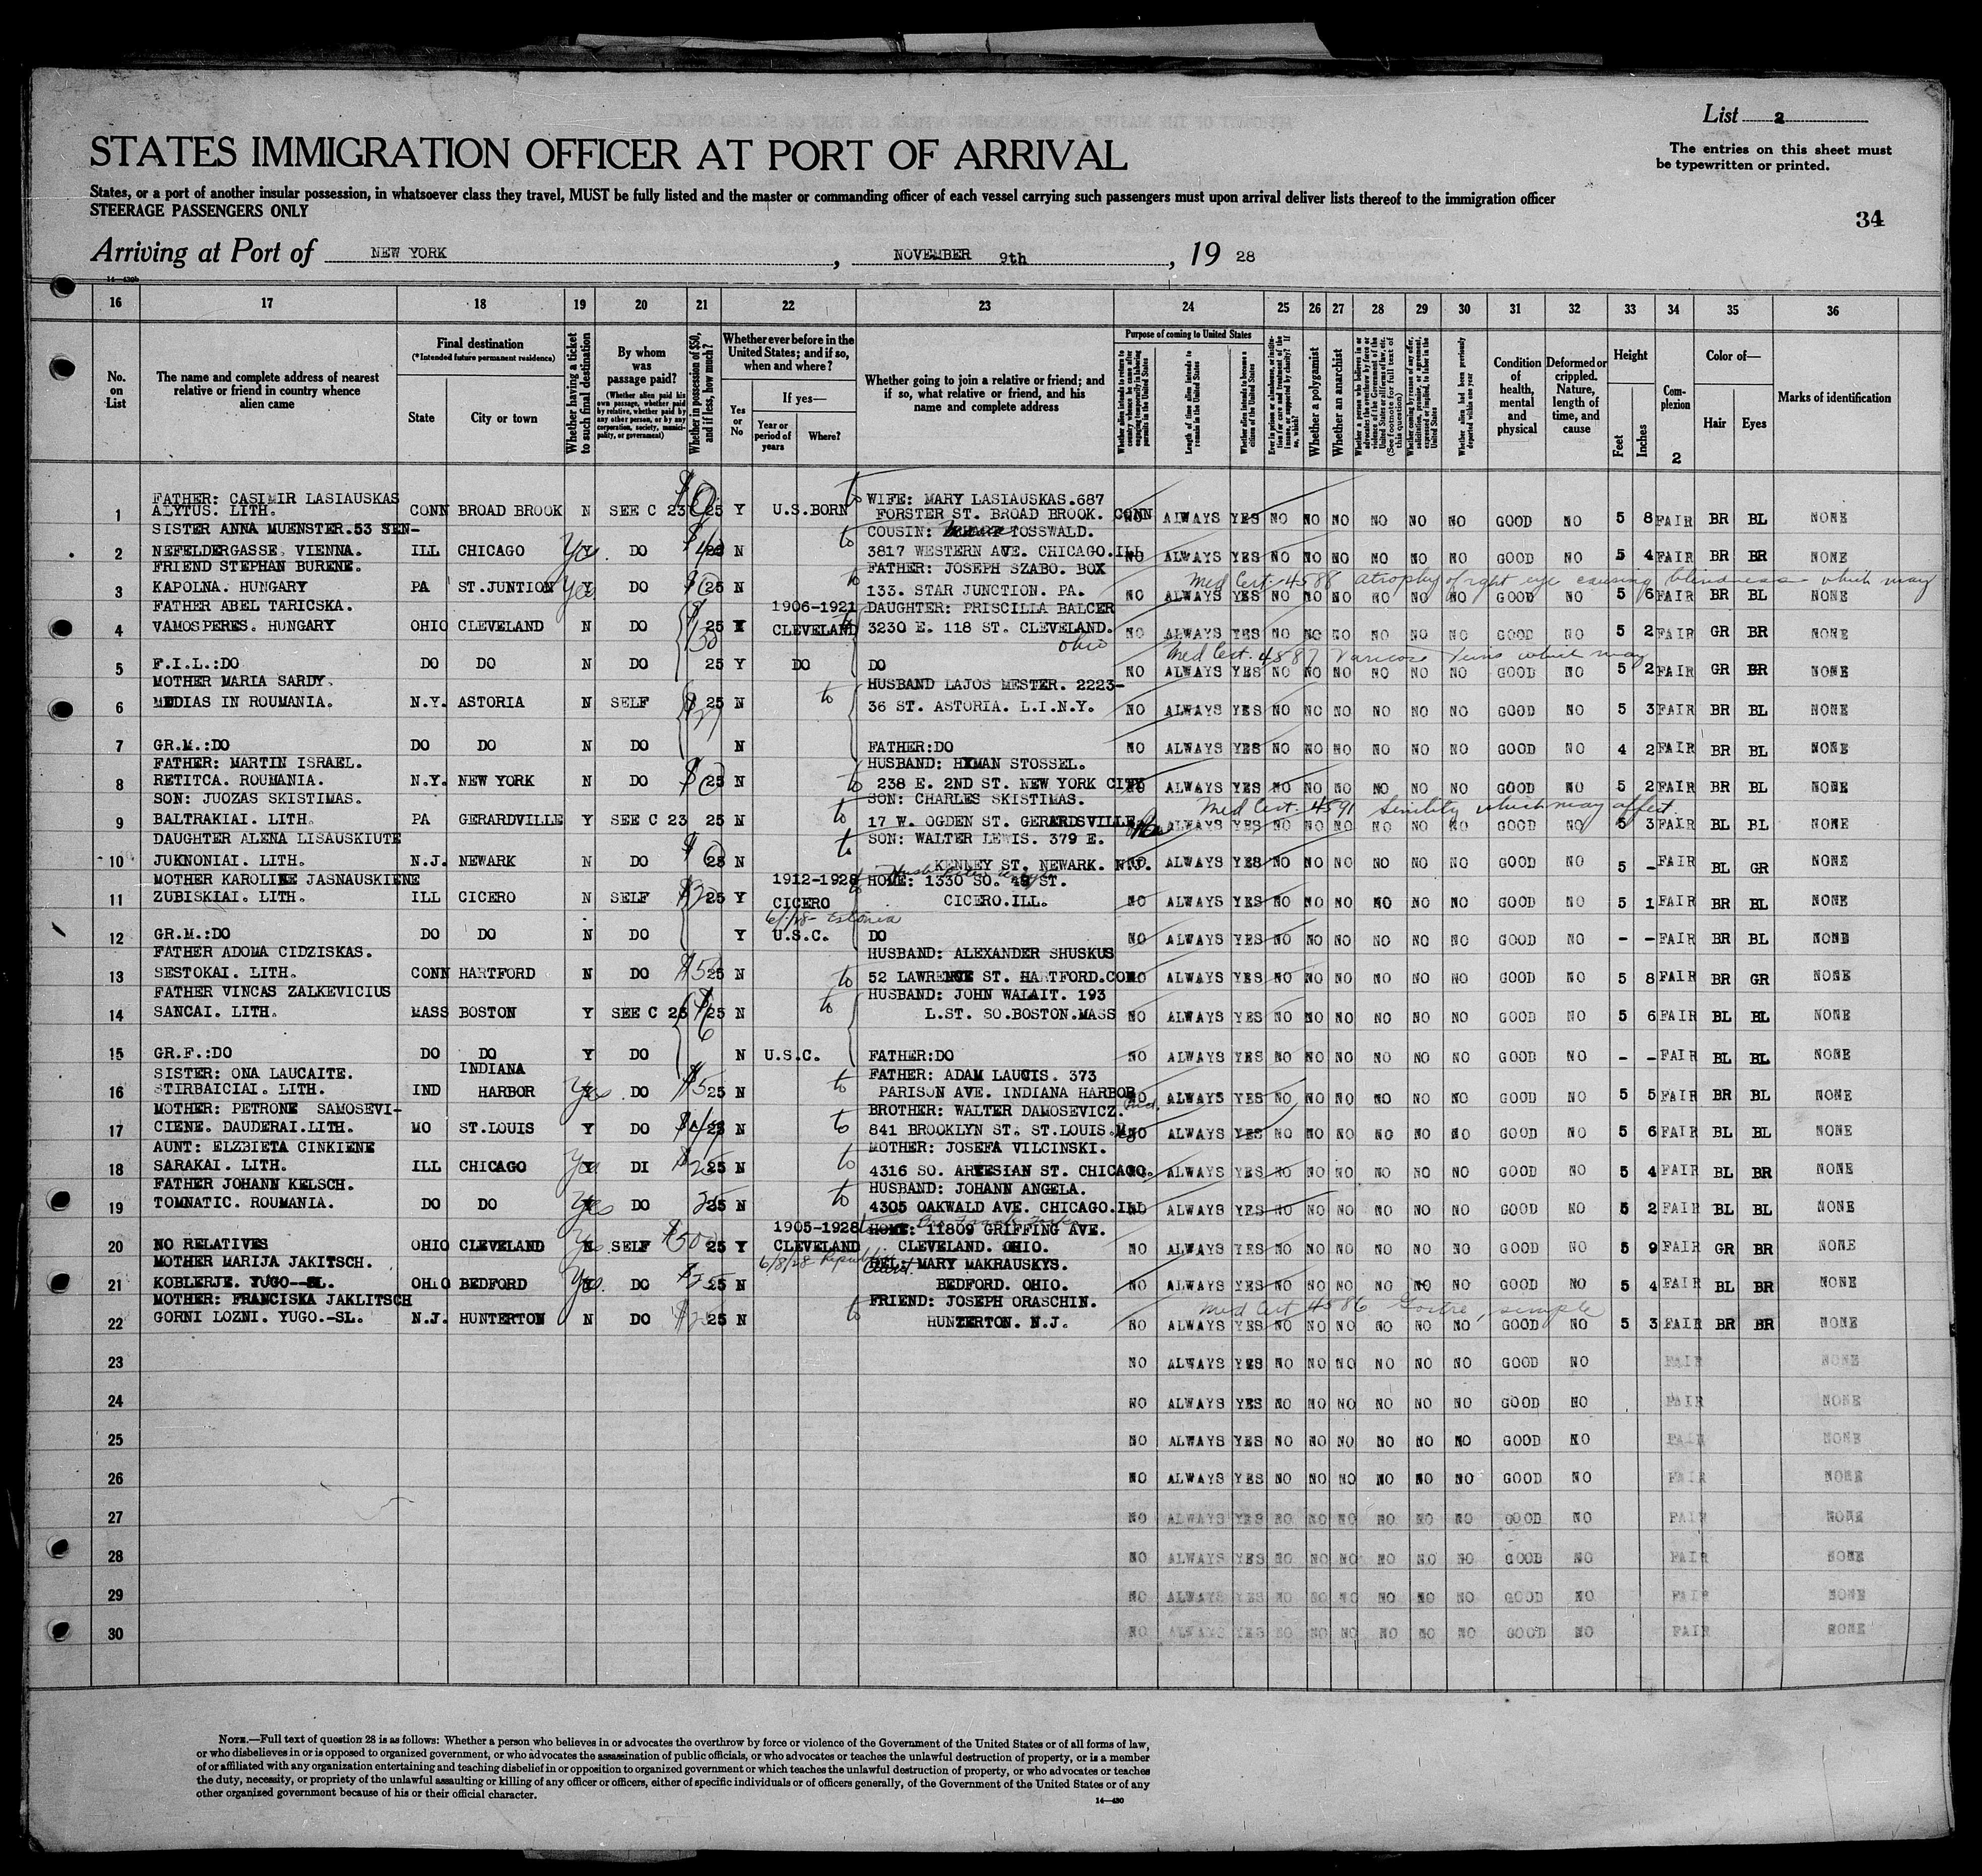 List 2
STATES IMMIGRATION OFFICER AT PORT OF ARRIVAL
The entries on this sheet must
be typewritten or printed.
States, or a port of another insular possession, in whatsoever class they travel, MUST be fully listed and the master or commanding officer of each vessel carrying such passengers must upon arrival deliver lists thereof to the immigration officer
STEERAGE PASSENGERS ONLY
34
Arriving at Port of NEW YORK, NOVEMBER 9th, 19 28
16 17 18 19 20 21 22 23 24 25 26 27 28 29 30 31 32 33 34 35 36
No. on List
The name and complete address of nearest relative or friend in country whence alien came
Final destination
(*Intended future permanent residence)
State
City or town
Whether having a ticket to such final destination
By whom was passage paid?
(Whether alien paid his own passage, whether paid by relative, whether paid by any other person, or by any corporation, society, municipality, or government)
Whether in possession of $50, and if less, how much?
Whether ever before in the United States; and if so, when and where?
Yes or No
If yes—
Year or period of years
Where?
Whether going to join a relative or friend; and if so, what relative or friend, and his name and complete address
Purpose of coming to United States
Length of time alien intends to remain in the United States
Whether alien intends to become a citizen of the United States
Whether a polygamist
Whether an anarchist
Condition of health, mental and physical
Deformed or crippled. Nature, length of time, and cause
Height
Feet
Inches
Complexion
2
Color of—
Hair
Eyes
Marks of identification
FATHER: CASIMIR LASIAUSKAS WIFE: MARY LASIAUSKAS.687
1 ALYTUS. LITH. CONN BROAD BROOK N SEE C 23 25 Y U.S.BORN FORSTER ST. BROAD BROOK. CONN NO ALWAYS YES NO NO NO NO NO NO GOOD NO 5 8 FAIR BR BL NONE
SISTER ANNA MUENSTER.53 SEN- COUSIN: TOSSWALD.
2 NEFELDERGASSE. VIENNA. ILL CHICAGO Yes DO N 3817 WESTERN AVE. CHICAGO.ILL NO ALWAYS YES NO NO NO NO NO NO GOOD NO 5 4 FAIR BR BR NONE
FRIEND STEPHAN BURENE. FATHER: JOSEPH SZABO. BOX
Med Cert. 4588 atrophy of right eye causing blindness which may
3 KAPOLNA. HUNGARY PA ST.JUNTION Yes DO 25 N 133. STAR JUNCTION. PA. NO ALWAYS YES NO NO NO NO NO NO GOOD NO 5 6 FAIR BR BL NONE
FATHER ABEL TARICSKA. 1906-1921 DAUGHTER: PRISCILLA BALCER
4 VAMOSPERES. HUNGARY OHIO CLEVELAND N DO 25 CLEVELAND 3230 E. 118 ST. CLEVELAND. Ohio NO ALWAYS YES NO NO NO NO NO NO GOOD NO 5 2 FAIR GR BR NONE
Med Cert. 4587 Varicose Veins which may
5 F.I.L.:DO DO DO N DO 25 Y DO DO NO ALWAYS YES NO NO NO NO NO NO GOOD NO 5 2 FAIR GR BR NONE
MOTHER MARIA SARDY. HUSBAND LAJOS MESTER. 2223-
6 MEDIAS IN ROUMANIA. N.Y. ASTORIA N SELF 25 N to 36 ST. ASTORIA. L.I.N.Y. NO ALWAYS YES NO NO NO NO NO NO GOOD NO 5 3 FAIR BR BL NONE
7 GR.M.:DO DO DO N DO N FATHER:DO NO ALWAYS YES NO NO NO NO NO NO GOOD NO 4 2 FAIR BR BL NONE
FATHER: MARTIN ISRAEL. HUSBAND: HYMAN STOSSEL.
8 RETITCA. ROUMANIA. N.Y. NEW YORK N DO 25 N to 238 E. 2ND ST. NEW YORK CITY NO ALWAYS YES NO NO NO NO NO NO GOOD NO 5 2 FAIR BR BL NONE
SON: JUOZAS SKISTIMAS. SON: CHARLES SKISTIMAS.
Med Cert. 4591 Senility which may affect
9 BALTRAKIAI. LITH. PA GERARDVILLE Y SEE C 23 25 N to 17 W. OGDEN ST. GERARDSVILLE Pa ALWAYS YES NO NO NO NO NO NO GOOD NO 5 3 FAIR BL BL NONE
DAUGHTER ALENA LISAUSKIUTE SON: WALTER LEWIS. 379 E.
10 JUKNONIAI. LITH. N.J. NEWARK N DO 25 N to KENNEY ST. NEWARK. N.J. NO ALWAYS YES NO NO NO NO NO NO GOOD NO 5 - FAIR BL GR NONE
MOTHER KAROLINE JASNAUSKIENE 1912-1928 HOME: 1330 SO. 49 ST.
11 ZUBISKIAI. LITH. ILL CICERO N SELF 25 Y CICERO CICERO.ILL. NO ALWAYS YES NO NO NO NO NO NO GOOD NO 5 1 FAIR BR BL NONE
Estonia
12 GR.M.:DO DO DO N DO Y U.S.C. DO NO ALWAYS YES NO NO NO NO NO NO GOOD NO - - FAIR BR BL NONE
FATHER ADOMA CIDZISKAS. HUSBAND: ALEXANDER SHUSKUS
13 SESTOKAI. LITH. CONN HARTFORD N DO 25 N to 52 LAWRENCE ST. HARTFORD.CON NO ALWAYS YES NO NO NO NO NO NO GOOD NO 5 8 FAIR BR GR NONE
FATHER VINCAS ZALKEVICIUS HUSBAND: JOHN WALAIT. 193
14 SANCAI. LITH. MASS BOSTON Y SEE C 23 25 N to L.ST. SO.BOSTON.MASS NO ALWAYS YES NO NO NO NO NO NO GOOD NO 5 6 FAIR BL BL NONE
15 GR.F.:DO DO DO Y DO N U.S.C. FATHER:DO NO ALWAYS YES NO NO NO NO NO NO GOOD NO - - FAIR BL BL NONE
SISTER: ONA LAUCAITE. INDIANA FATHER: ADAM LAUCIS. 373
16 STIRBAICIAI. LITH. IND HARBOR Yes DO 25 N to PARISON AVE. INDIANA HARBOR Ind. NO ALWAYS YES NO NO NO NO NO NO GOOD NO 5 5 FAIR BR BL NONE
MOTHER: PETRONE SAMOSEVI- BROTHER: WALTER DAMOSEVICZ.
17 CIENE. DAUDERAI.LITH. MO ST.LOUIS Y DO 25 N to 841 BROOKLYN ST. ST.LOUIS.Mo NO ALWAYS YES NO NO NO NO NO NO GOOD NO 5 6 FAIR BL BL NONE
AUNT: ELZBIETA CINKIENE MOTHER: JOSEFA VILCINSKI.
18 SARAKAI. LITH. ILL CHICAGO Yes DI 25 N to 4316 SO. ARTESIAN ST. CHICAGO. NO ALWAYS YES NO NO NO NO NO NO GOOD NO 5 4 FAIR BL BR NONE
FATHER JOHANN KELSCH. HUSBAND: JOHANN ANGELA.
19 TOMNATIC. ROUMANIA. DO DO Yes DO 25 N to 4305 OAKWALD AVE. CHICAGO.ILL NO ALWAYS YES NO NO NO NO NO NO GOOD NO 5 2 FAIR BL BL NONE
1905-1928 HOME: 11809 GRIFFING AVE.
20 NO RELATIVES OHIO CLEVELAND Yes SELF 25 Y CLEVELAND CLEVELAND. OHIO. NO ALWAYS YES NO NO NO NO NO NO GOOD NO 5 9 FAIR GR BR NONE
MOTHER MARIJA JAKITSCH. 6/8/28 Republic MARY MAKRAUSKYS.
21 KOBLERJE. YUGO-SL. OHIO BEDFORD Yes. DO 25 N BEDFORD. OHIO. NO ALWAYS YES NO NO NO NO NO NO GOOD NO 5 4 FAIR BL BR NONE
MOTHER: FRANCISKA JAKLITSCH FRIEND: JOSEPH ORASCHIN.
Med Cert 4586 Goitre, simple
22 GORNI LOZNI. YUGO.-SL. N.J. HUNTERTON N DO 25 N to HUNTERTON. N.J. NO ALWAYS YES NO NO NO NO NO NO GOOD NO 5 3 FAIR BR BR NONE
23 NO ALWAYS YES NO NO NO NO NO NO GOOD NO FAIR NONE
24 NO ALWAYS YES NO NO NO NO NO NO GOOD NO FAIR NONE
25 NO ALWAYS YES NO NO NO NO NO NO GOOD NO FAIR NONE
26 NO ALWAYS YES NO NO NO NO NO NO GOOD NO FAIR NONE
27 NO ALWAYS YES NO NO NO NO NO NO GOOD NO FAIR NONE
28 NO ALWAYS YES NO NO NO NO NO NO GOOD NO FAIR NONE
29 NO ALWAYS YES NO NO NO NO NO NO GOOD NO FAIR NONE
30 NO ALWAYS YES NO NO NO NO NO NO GOOD NO FAIR NONE
NOTE.—Full text of question 28 is as follows: Whether a person who believes in or advocates the overthrow by force or violence of the Government of the United States or of all forms of law,
or who disbelieves in or is opposed to organized government, or who advocates the assassination of public officials, or who advocates or teaches the unlawful destruction of property, or is a member
of or affiliated with any organization entertaining and teaching disbelief in or opposition to organized government or which teaches the unlawful destruction of property, or who advocates or teaches
the duty, necessity, or propriety of the unlawful assaulting or killing of any officer or officers, either of specific individuals or of officers generally, of the Government of the United States or of any
other organized government because of his or their official character.
14—430